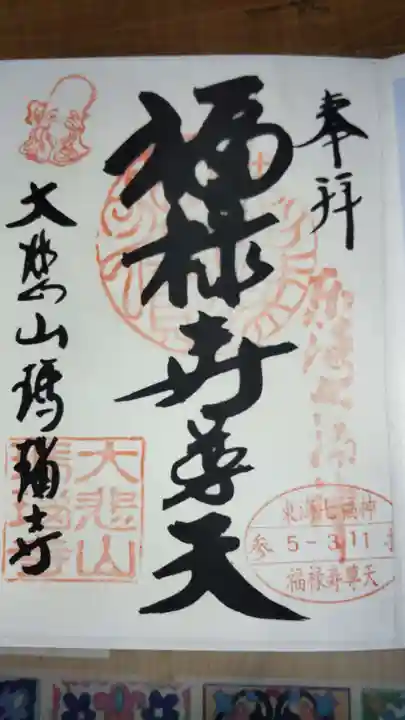 奉拝
福禄寿尊天
大悲山瑪瑙寺
大悲山
瑪瑙寺
東海七福神
5-3.11
福禄寿尊天